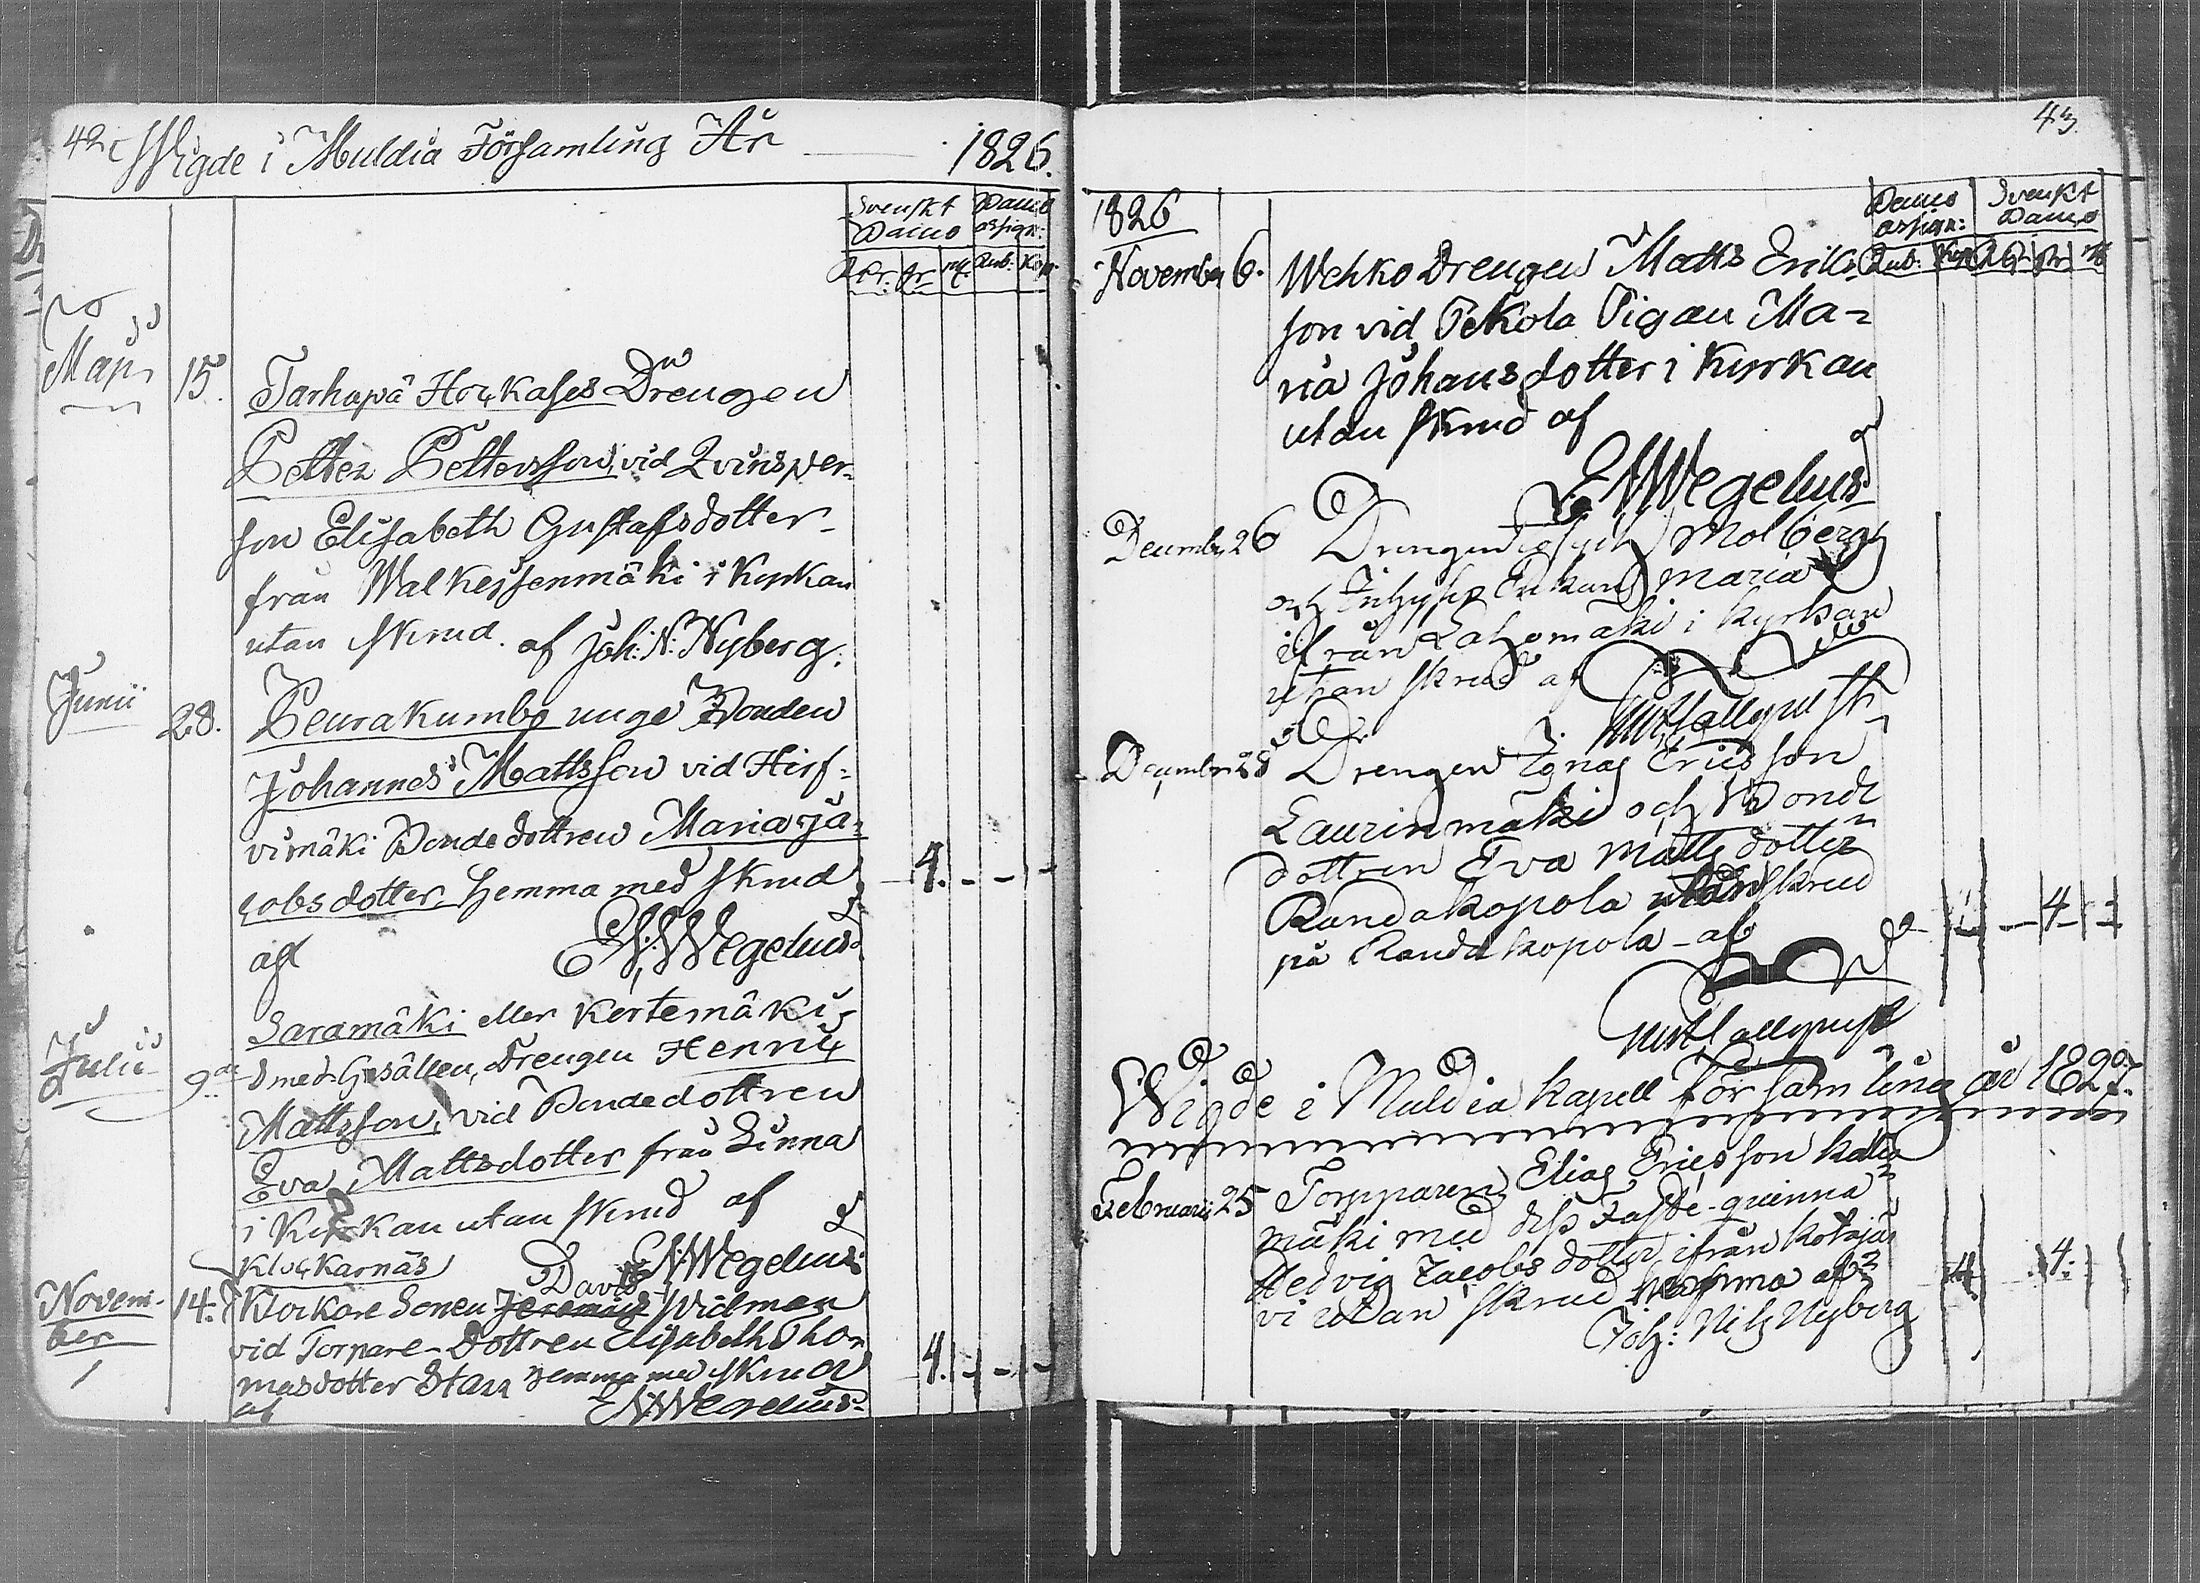 42 Wigde i Muldia Församling År 1826.
Svenskt Banco
Banco assign:
RDr: sr rst. Rub: Kop:
Maji 15. Tarhapä Håckases Drengen
Petter Pettersson, vid Qvinsper-
son Elisabeth Gustafsdotter
från Walkeissenmäki i Kyrkan
utan skrud. af Joh: N: Nyberg.
Junii 28. Peurakumbo unge Bonden
Johannes Mattsson vid Hirf-
vimäki Bonde dottren Maria Ja-
cobsdotter. hemma med skrud 4. - - -
af E N Wegelius
Julii 9de Saramäki eller Kertemäki
Smeds Gesällen, Drengen Henric
Mattsson, vid Bondedottren
Eva Mattsdotter från Linna
i Kyrkan utan skrud af
E N Wegelius
Klockarnäs
Novem-
ber 14. Klockare Sonen Jeremias David Widman
vid Torpare-Dottren Elisabeth Tho-
masdotter Starr hemma med skrud 4. - - -
af E N Wegelius
43.
1826
Banco assign:
Svenskt Banco
Rub: Kop
November 6. Wehko Drengen Matts Eriks-
son vid Pekola Pigan Ma-
ria Johansdotter i Kyrkan
utan skrud af
E N Wegelius
December 26 Drengen Molberg
och Inhyses Enkan Maria
ifrån Lahomäki i Kyrkan
utan skrud af
December 28 Drengen Ignas Ericsson
Laurinmäki och Bonde
dottren Eva Matts dotter
Randakopola utan skrud
på Randakopola - af - 4 -
Wigde i Muldia Kapell Församling år 1827.
Februarii 25 Torpparen Elias Ericsson Kallio
mäki med dess Fäste-quinna
Hedvig Jacobs dotter ifrån Kotajär
vi utan skrud hemma af 4 4.
Joh: Nils Nyberg